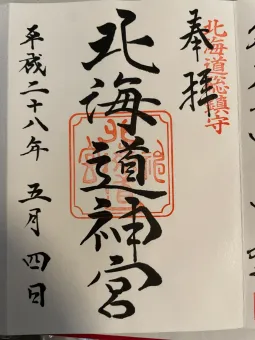 奉拝
北海道総鎮守
北海道神宮
平成二十八年 五月 四日